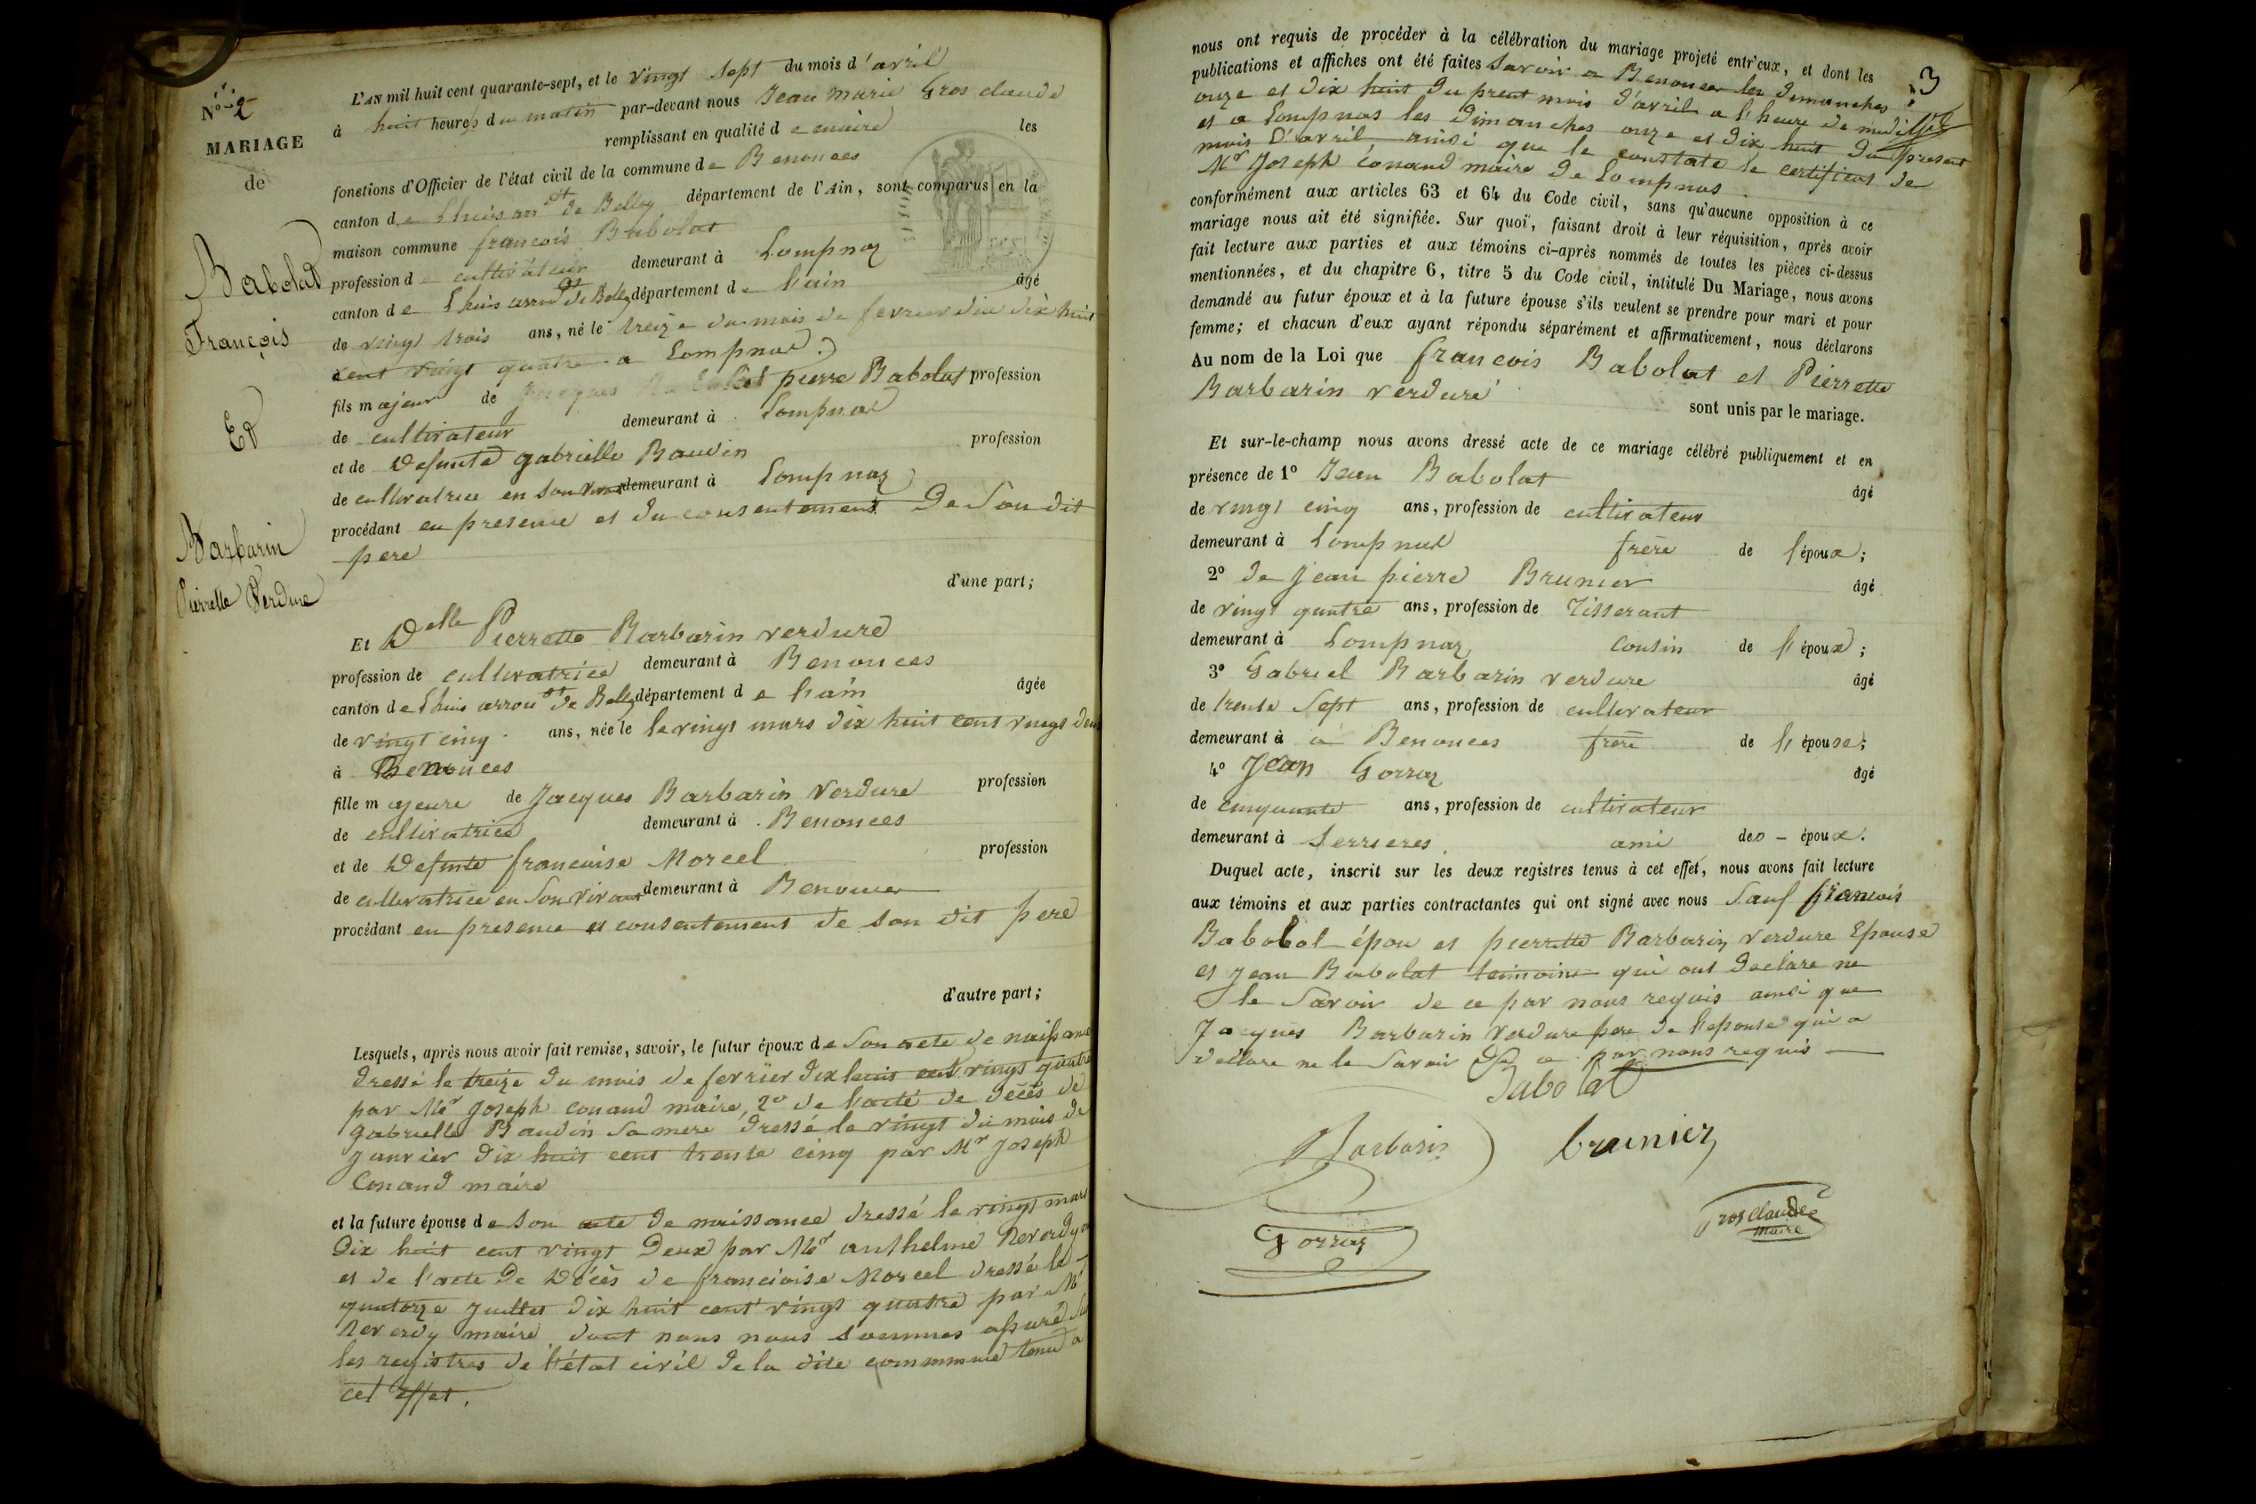 N° 2
MARIAGE
de
Babolat
François
Et
Barbarin
Pierrette Verdure
L'AN mil huit cent quarante-sept, et le vingt sept du mois d'avril
à huit heures du matin par-devant nous Jean Marie Gros claude
remplissant en qualité de maire les
fonctions d'Officier de l'état civil de la commune de Benonces
canton de Lhuis arr.nt de Belley département de l'Ain, sont comparus en la
maison commune francois Babolat
profession de cultivateur demeurant à Lompnaz
canton de Lhuis arron.t de Belley département de l'ain âgé
de vingt trois ans, né le treize du mois de fevrier dix huit
cent vingt quatre a Lompnas
fils majeur de pierre Babolat profession
de cultivateur demeurant à Lompnas
et de Defunte gabrielle Baudin profession
de cultivatrice en son vivant demeurant à Lompnaz
procédant en presence et du consentement De Son dit
pere
d'une part;
Et Delle Pierrette Barbarin verdure
profession de cultivatrice demeurant à Benonces
canton de Lhuis arron.t de Belley département de l'ain âgée
de vingt cinq ans, née le le vingt mars dix huit cent vingt deux
à Benonces
fille majeure de Jacques Barbarin Verdure profession
de cultivatrice demeurant à Benonces
et de Defunte francoise Morcel profession
de cultivatrice en Son vivant demeurant à Benonces
procédant en presence et consentement de son dit pere
d'autre part;
Lesquels, après nous avoir fait remise, savoir, le futur époux de Son acte de naissance
Dressé le treize du mois de fevrier dix huit cent vingt quatre
par Mr Joseph conand maire, 2° de l'acte de décès de
gabrielle Baudin Sa mere dressé le vingt du mois de
Janvier dix huit cent trente cinq par Mr Joseph
Conand maire
et la future épouse de son acte de naissance dressé le vingt mars
Dix huit cent vingt Deux par Mr anthelme Reverdy
et de l'acte De Décès de francoise Morcel dressé le
quatorze Juillet Dix huit cent vingt quatre par Mr
Reverdy maire dont nous nous sommes assuré sur
les registres de l'état civil de la dite commune tenu a
cet effet.
3
nous ont requis de procéder à la célébration du mariage projeté entr'eux, et dont les
publications et affiches ont été faites Savoir a Benonces les dimanches
onze et dix huit du present mois d'avril a l'heure de midi
et a Lompnas les Dimanches onze et dix huit du present
mois D'avril ainsi que le constate le certificat de
Mr Joseph Conand maire de Lompnas
conformément aux articles 63 et 64 du Code civil, sans qu'aucune opposition à ce
mariage nous ait été signifiée. Sur quoi, faisant droit à leur réquisition, après avoir
fait lecture aux parties et aux témoins ci-après nommés de toutes les pièces ci-dessus
mentionnées, et du chapitre 6, titre 5 du Code civil, intitulé Du Mariage, nous avons
demandé au futur époux et à la future épouse s'ils veulent se prendre pour mari et pour
femme; et chacun d'eux ayant répondu séparément et affirmativement, nous déclarons
Au nom de la Loi que francois Babolat et Pierrette
Barbarin verdure
sont unis par le mariage.
Et sur-le-champ nous avons dressé acte de ce mariage célébré publiquement et en
présence de 1° Jean Babolat âgé
de vingt cinq ans, profession de cultivateur
demeurant à Lompnas frere de l'époux;
2° de Jean pierre Brunier âgé
de vingt quatre ans, profession de Tisserant
demeurant à Lompnaz cousin de l'époux;
3° Gabriel Barbarin verdure âgé
de trente Sept ans, profession de cultivateur
demeurant à a Benonces frere de l'épouse;
4° Jean Gorraz âgé
de cinquante ans, profession de cultivateur
demeurant à Serrieres ami des époux.
Duquel acte, inscrit sur les deux registres tenus à cet effet, nous avons fait lecture
aux témoins et aux parties contractantes qui ont signé avec nous Sauf francois
Babolat épou et pierrette Barbarin verdure Epouse
et Jean Babolat temoins qui ont Declare ne
le Savoir de ce par nous requis ainsi que
Jacques Barbarin Verdure pere de l'epouse qui a
declare ne le Savoir De ce par nous requis
Babolat
Barbarin
brunier
Gorraz
Gros Claude
maire